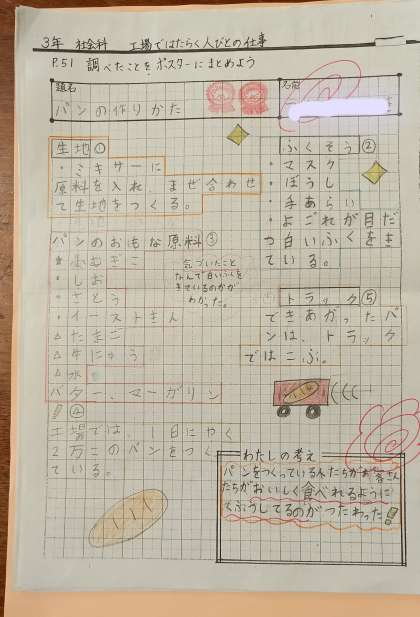 3年 社会科 工場ではたらく人びとの仕事
P.51 調べたことをポスターにまとめよう
題名
パンの作りかた
名前
生地①
・ミキサーに
原料を入れ、まぜ合わせ
て生地をつくる。
パンのおもな原料③
こむぎこ
・しお
・さとう
・イーストきん
△たまご
△牛にゅう
△水
バター、マーガリン
気づいたこと
なんで白いふくを
きているのかが
わかった。
④
工場では、1日にやく
2万このパンをつくっ
ている。
ふくそう②
・マスク
・ぼうし
・手あらい
・よごれが目だ
つ白いふくをき
ている。
トラック⑤
できあがったパ
ンは、トラック
ではこぶ。
わたしの考え
パンをつくっている人たちがお客さん
たちがおいしく食べれるように
くふうしてるのがつたわった!